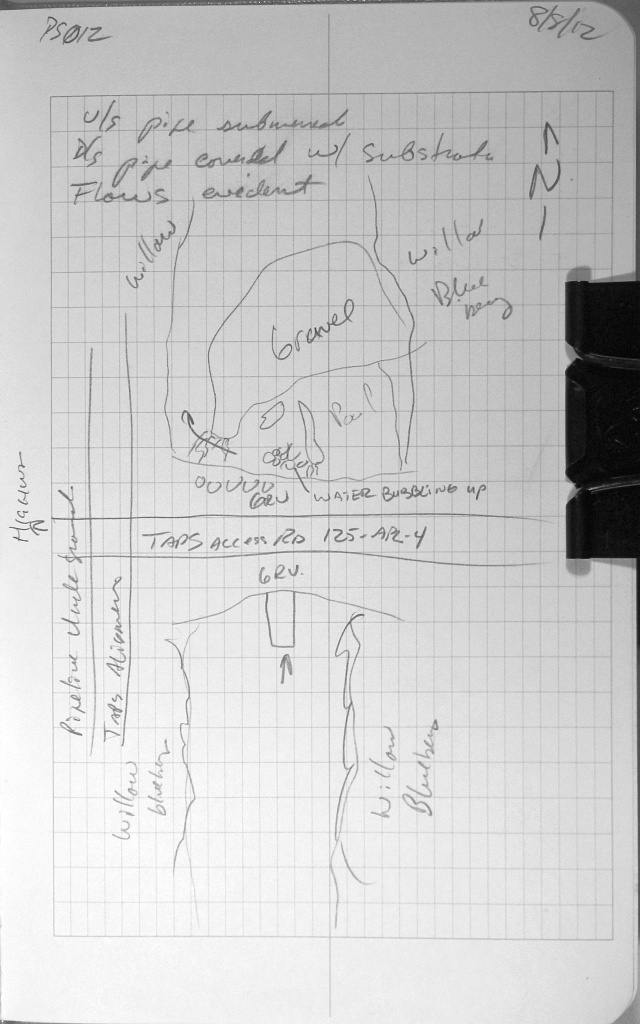 PS012
8/8/12
U/S pipe submerged
D/S pipe covered w/ substrate
Flows evident
N
Willow
Willow
Blue
berry
Gravel
Pool
GRV
WATER BUBBLING UP
Highway
TAPS Access RD 125-APL-4
GRV.
Pipeline Underground
TAPS Alignment
Willow
blueberry
Willow
Blueberry